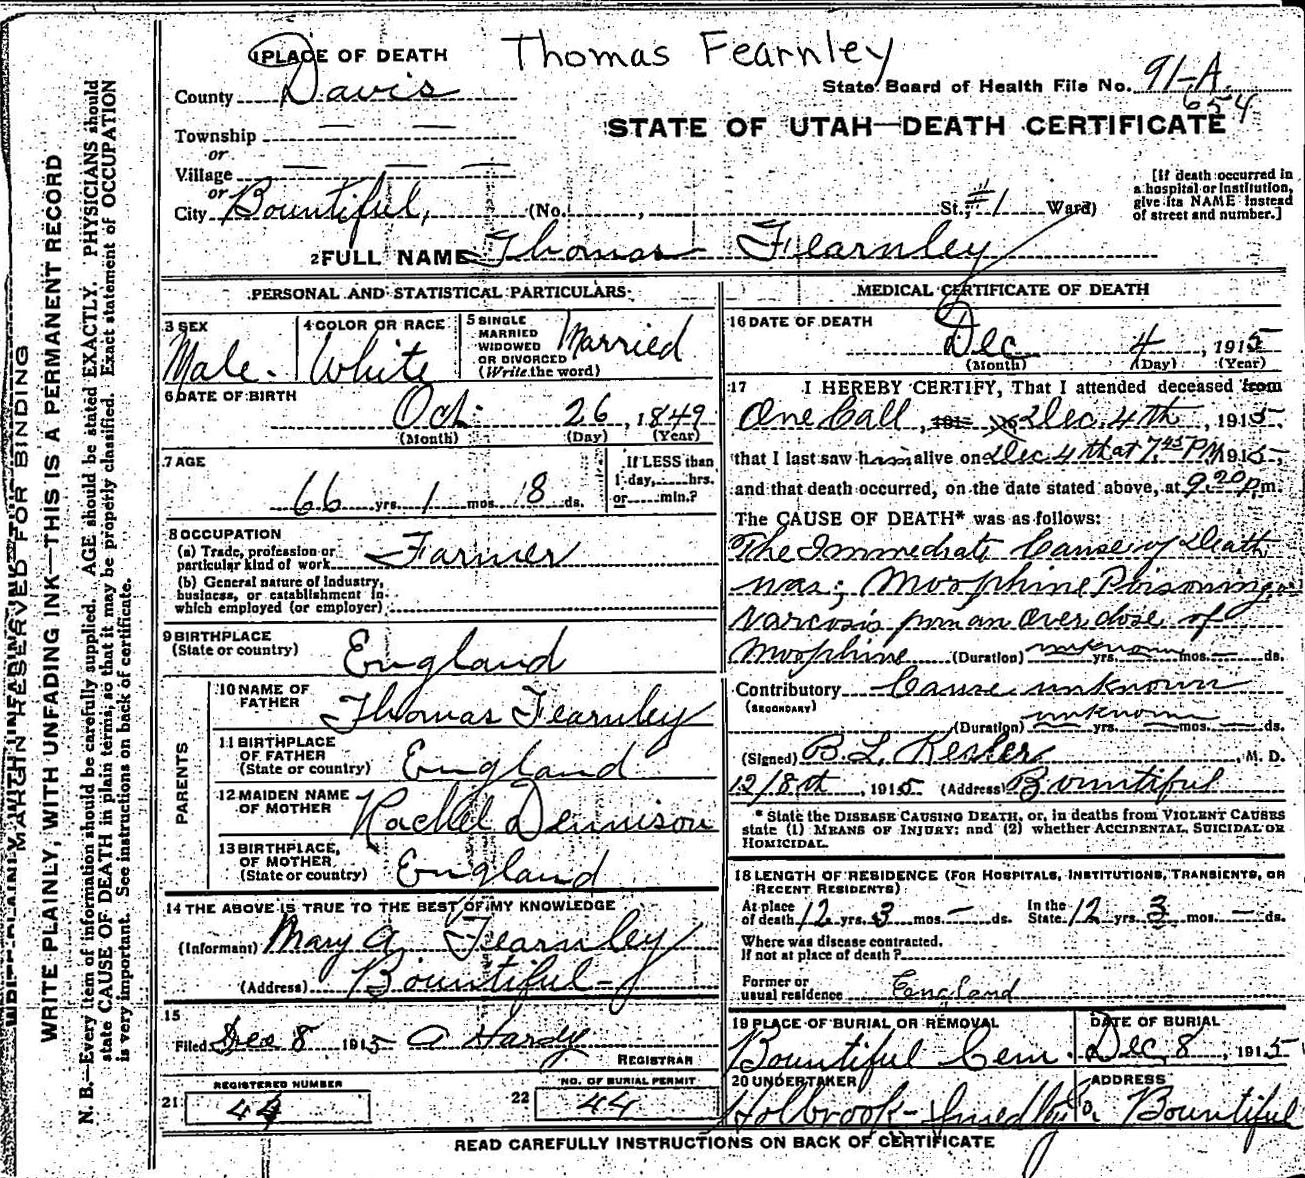 1 PLACE OF DEATH
Thomas Fearnley
County Davis
State Board of Health File No. 91-A
654
Township — —
STATE OF UTAH—DEATH CERTIFICATE
or
Village — — —
or
City Bountiful, (No. , St.; #1 Ward)
[If death occurred in
a hospital or institution,
give its NAME instead
of street and number.]
2 FULL NAME Thomas Fearnley
PERSONAL AND STATISTICAL PARTICULARS
3 SEX
Male.
4 COLOR OR RACE
White
5 SINGLE
MARRIED
WIDOWED
OR DIVORCED
(Write the word)
Married
6 DATE OF BIRTH
Oct. 26, 1849
(Month) (Day) (Year)
7 AGE
66 yrs. 1 mos. 8 ds.
If LESS than
1 day, hrs.
or min.?
8 OCCUPATION
(a) Trade, profession or
particular kind of work Farmer
(b) General nature of Industry,
business, or establishment in
which employed (or employer)
9 BIRTHPLACE
(State or country)
England
PARENTS
10 NAME OF
FATHER
Thomas Fearnley
11 BIRTHPLACE
OF FATHER
(State or country)
England
12 MAIDEN NAME
OF MOTHER
Rachel Dennison
13 BIRTHPLACE
OF MOTHER
(State or country)
England
14 THE ABOVE IS TRUE TO THE BEST OF MY KNOWLEDGE
(Informant) Mary A. Fearnley
(Address) Bountiful
15
Filed Dec 8 1915 A Hardy
REGISTRAR
REGISTERED NUMBER
21 44
NO. OF BURIAL PERMIT
22 44
MEDICAL CERTIFICATE OF DEATH
16 DATE OF DEATH
Dec 4, 1915
(Month) (Day) (Year)
17 I HEREBY CERTIFY, That I attended deceased from
One Call, 191 to Dec. 4th, 1915,
that I last saw him alive on Dec 4th at 7.45 PM 1915,
and that death occurred, on the date stated above, at 9.20 p.m.
The CAUSE OF DEATH* was as follows:
The Immediate Cause of Death
was; Moophine Poisoning or
Narcosis from an Over dose of
Moophine (Duration) unknown yrs. mos. — ds.
Contributory Cause unknown
(SECONDARY)
(Duration) unknown yrs. — mos. — ds.
(Signed) B. L. Kesler, M. D.
12/8th, 1915 (Address) Bountiful
* State the DISEASE CAUSING DEATH, or, in deaths from VIOLENT CAUSES
state (1) MEANS OF INJURY; and (2) whether ACCIDENTAL, SUICIDAL OR
HOMICIDAL.
18 LENGTH OF RESIDENCE (FOR HOSPITALS, INSTITUTIONS, TRANSIENTS, OR
RECENT RESIDENTS)
At place
of death 12 yrs. 3 mos. — ds.
In the
State 12 yrs. 3 mos. — ds.
Where was disease contracted,
If not at place of death?
Former or
usual residence England
19 PLACE OF BURIAL OR REMOVAL
Bountiful Cem.
DATE OF BURIAL
Dec 8, 1915
20 UNDERTAKER
Holbrook-Smedley Co.
ADDRESS
Bountiful
READ CAREFULLY INSTRUCTIONS ON BACK OF CERTIFICATE
MARGIN RESERVED FOR BINDING
WRITE PLAINLY, WITH UNFADING INK—THIS IS A PERMANENT RECORD
N. B.—Every item of information should be carefully supplied. AGE should be stated EXACTLY. PHYSICIANS should
state CAUSE OF DEATH in plain terms, so that it may be properly classified. Exact statement of OCCUPATION
is very important. See instructions on back of certificate.